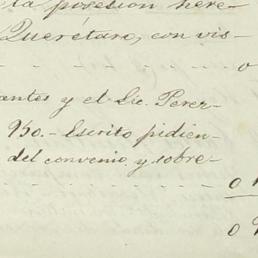 la posesion here-
Querétaro, con vis-
o
antes y el Lic. Perez
9/50. - Escrito pidien-
del convenio y sobre-
0
0